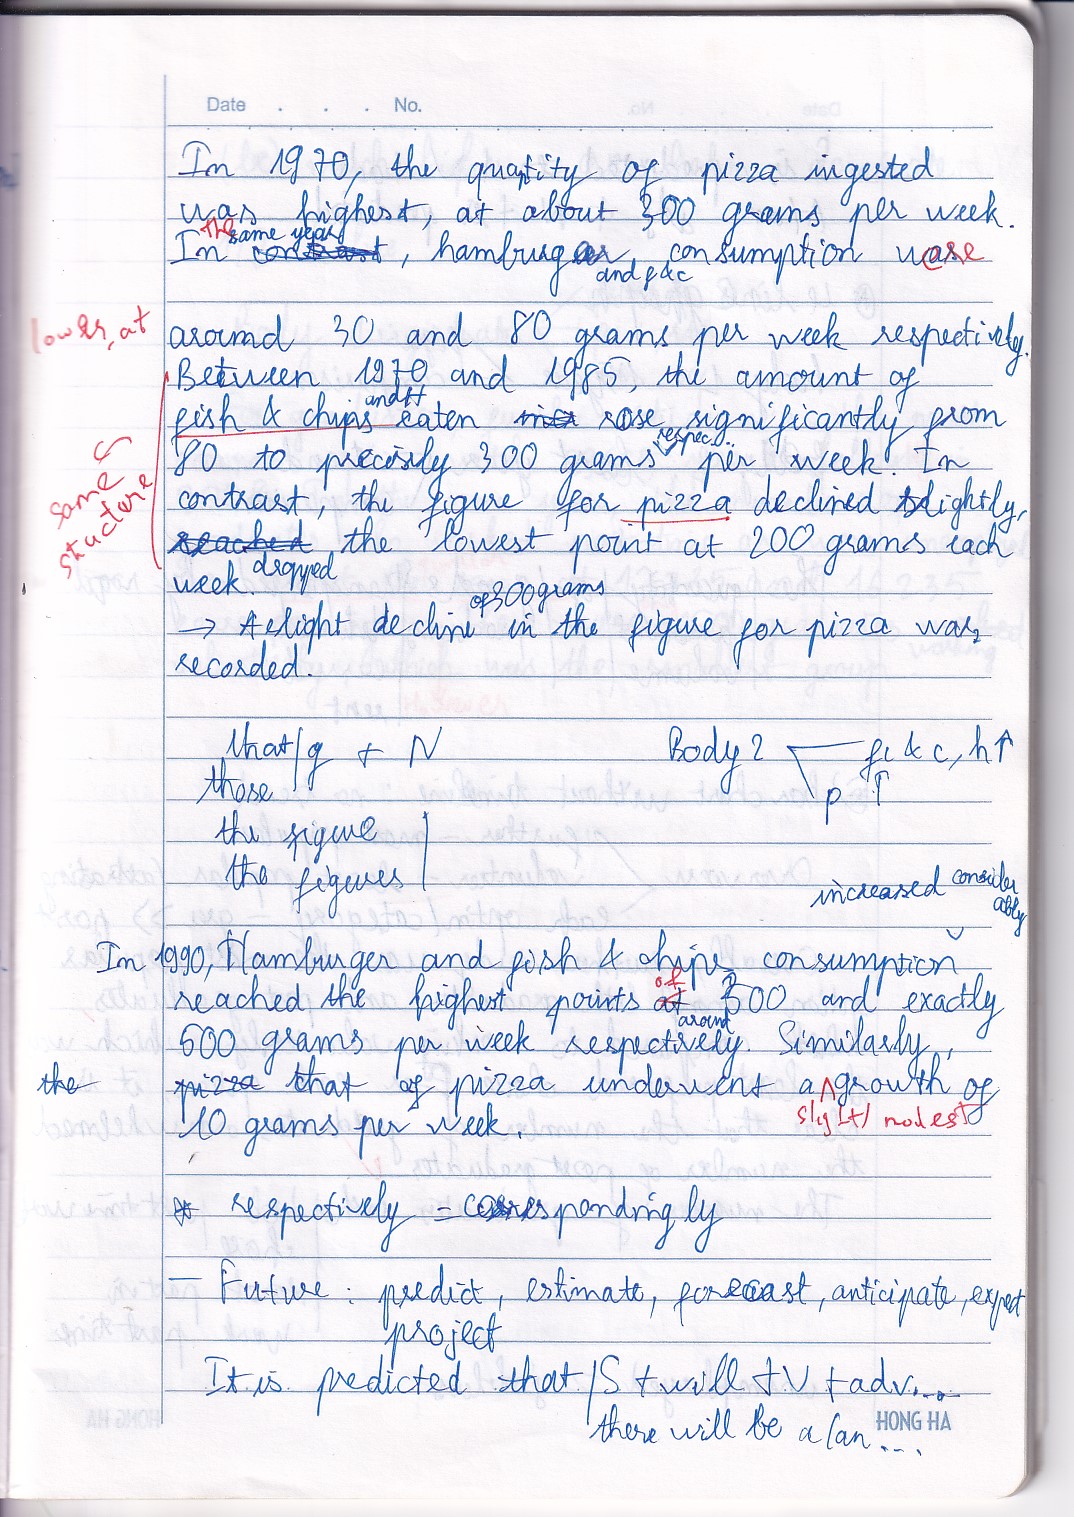 Date . . . No.
In 1970, the quantity of pizza ingested
was highest, at about 300 grams per week.
the same year
In contrast, hamburger, consumption was are
and f & c
lower, at
around 30 and 80 grams per week respectively.
Between 1970 and 1985, the amount of
and H
fish & chips eaten rose significantly from
respec.
80 to precisely 300 grams per week. In
same structure
contrast, the figure for pizza declined slightly,
reached the lowest point at 200 grams each
week. dropped
of 300 grams
→ A slight decline in the figure for pizza was
recorded.
that/g + N
those
the figure
the figures
Body 2 f & c, h↑
p ↑
increased considerably
In 1990, Hamburger and fish & chips consumption
of
reached the highest points at 300 and exactly
around
500 grams per week respectively. Similarly,
the pizza that of pizza underwent a growth of
slight/ modest
10 grams per week.
* respectively = correspondingly
- Future : predict, estimate, forecast, anticipate, expect
project
It is predicted that /S + will + V + adv...
there will be a/an ...
HONG HA